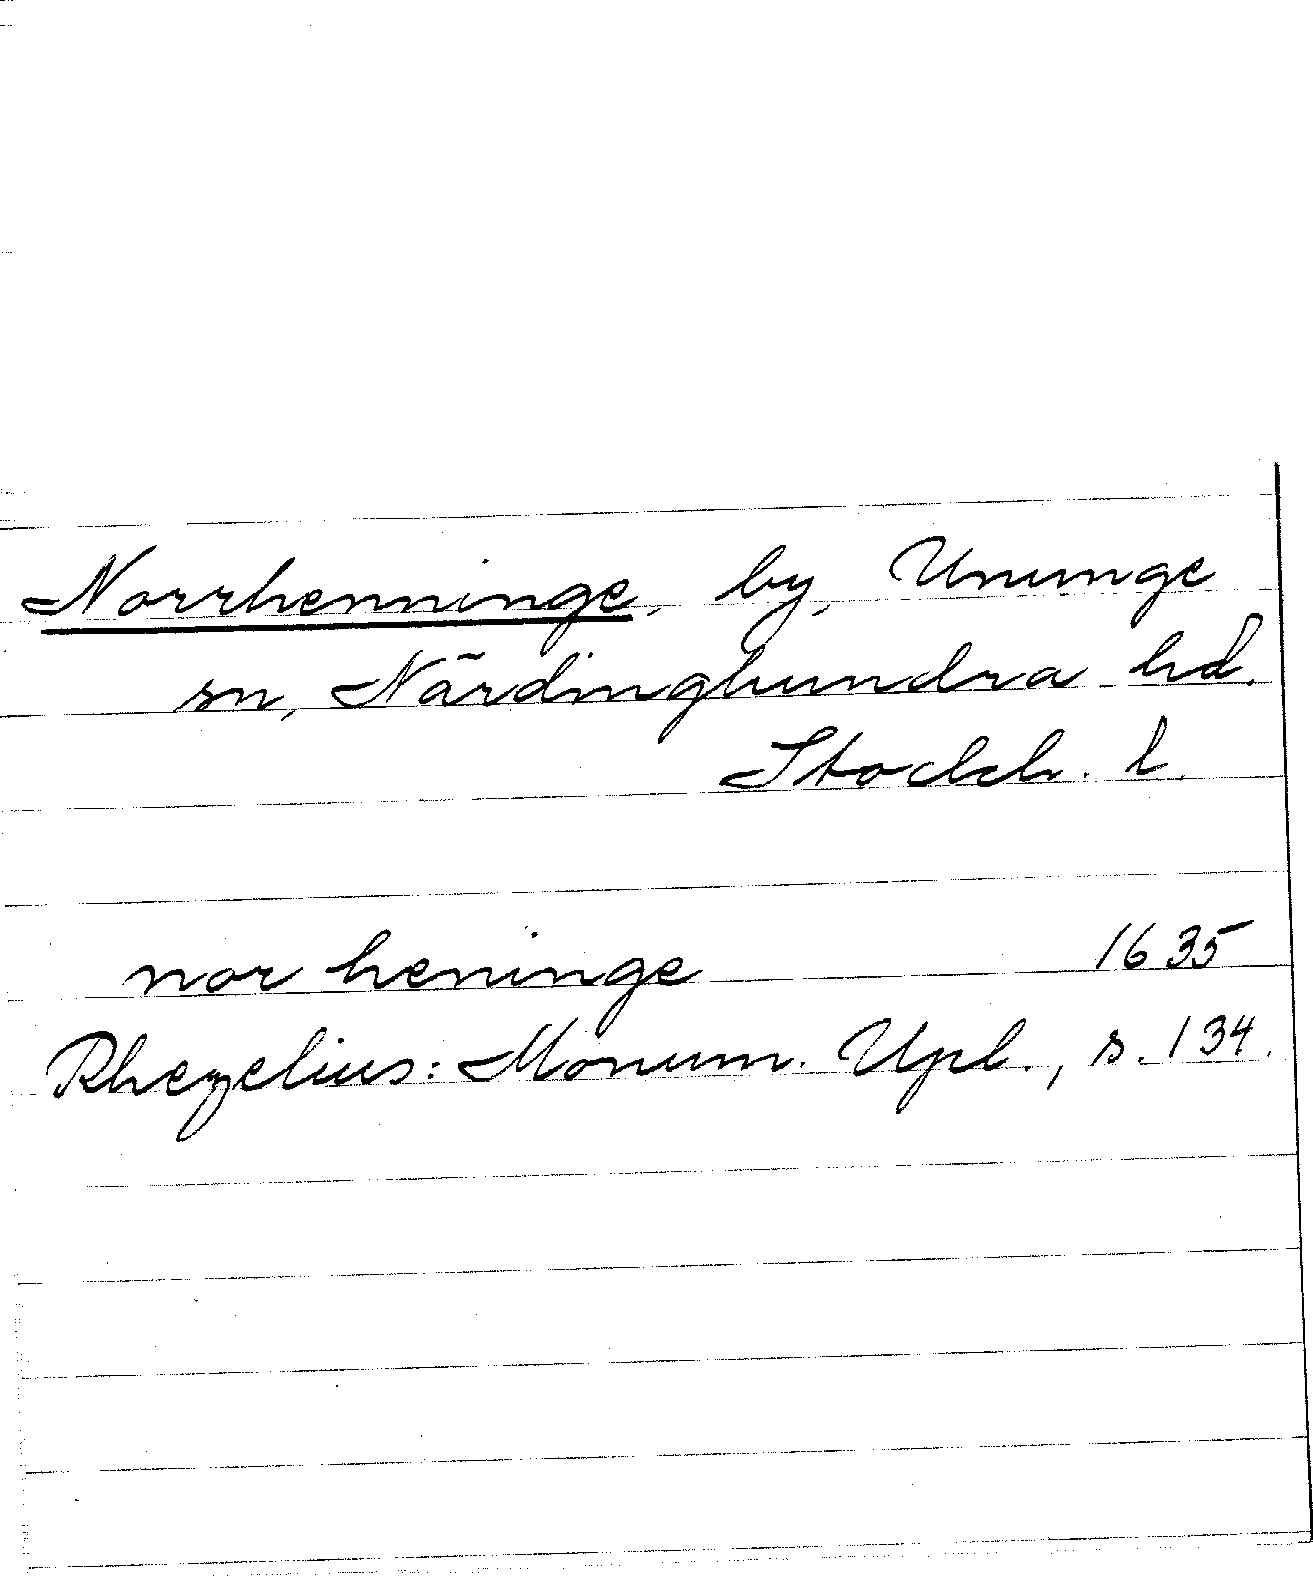 Norrhenninge, by, Ununge
sn, Närdinghundra hd.
Stockh. l.
nor heninge 1635
Rhezelius: Monum. Upl., s. 134.